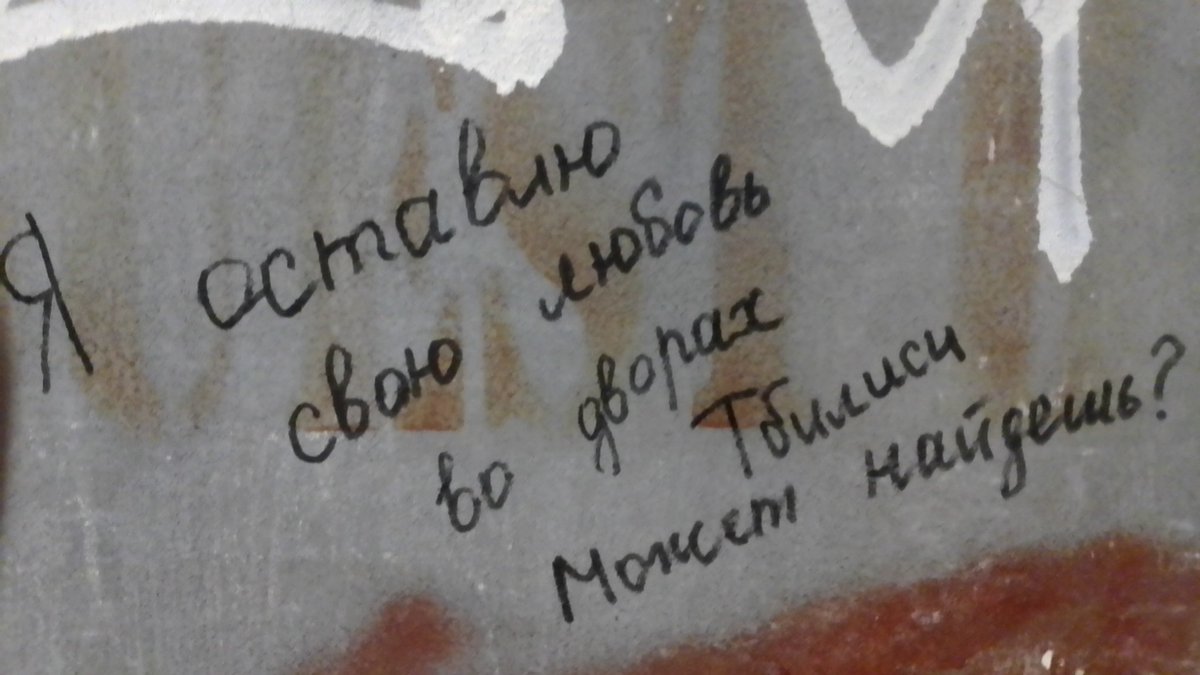 Я оставлю
свою любовь
во дворах
Тбилиси
Может найдешь?